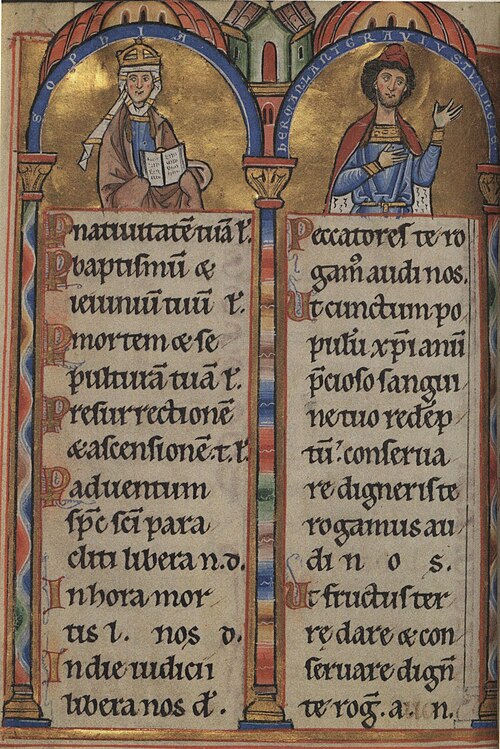 SOPHIA
HERMAN LANTGRAVIVS TVRINGIE
P nativitatē tuā l'.
P baptismū &
ieiuniū tuū l'.
P mortem & se
pulturā tuā l'.
P resurrectionē
& ascensionē. t. l'.
P adventum
sp̄c sc̄i para
cliti libera n. d.
In hora mor
tis l. nos d.
In die iudicii
libera nos d'.
Peccatores te ro
gam̄ audi nos.
Ut cunctum po
pulū xp̄ianū
p̄cioso sangui
ne tuo redēp
tū. conserva
re digneris te
rogamus au
di n o s.
Ut fructus ter
rę dare & con
servare dign̄
te roḡ. a. n.